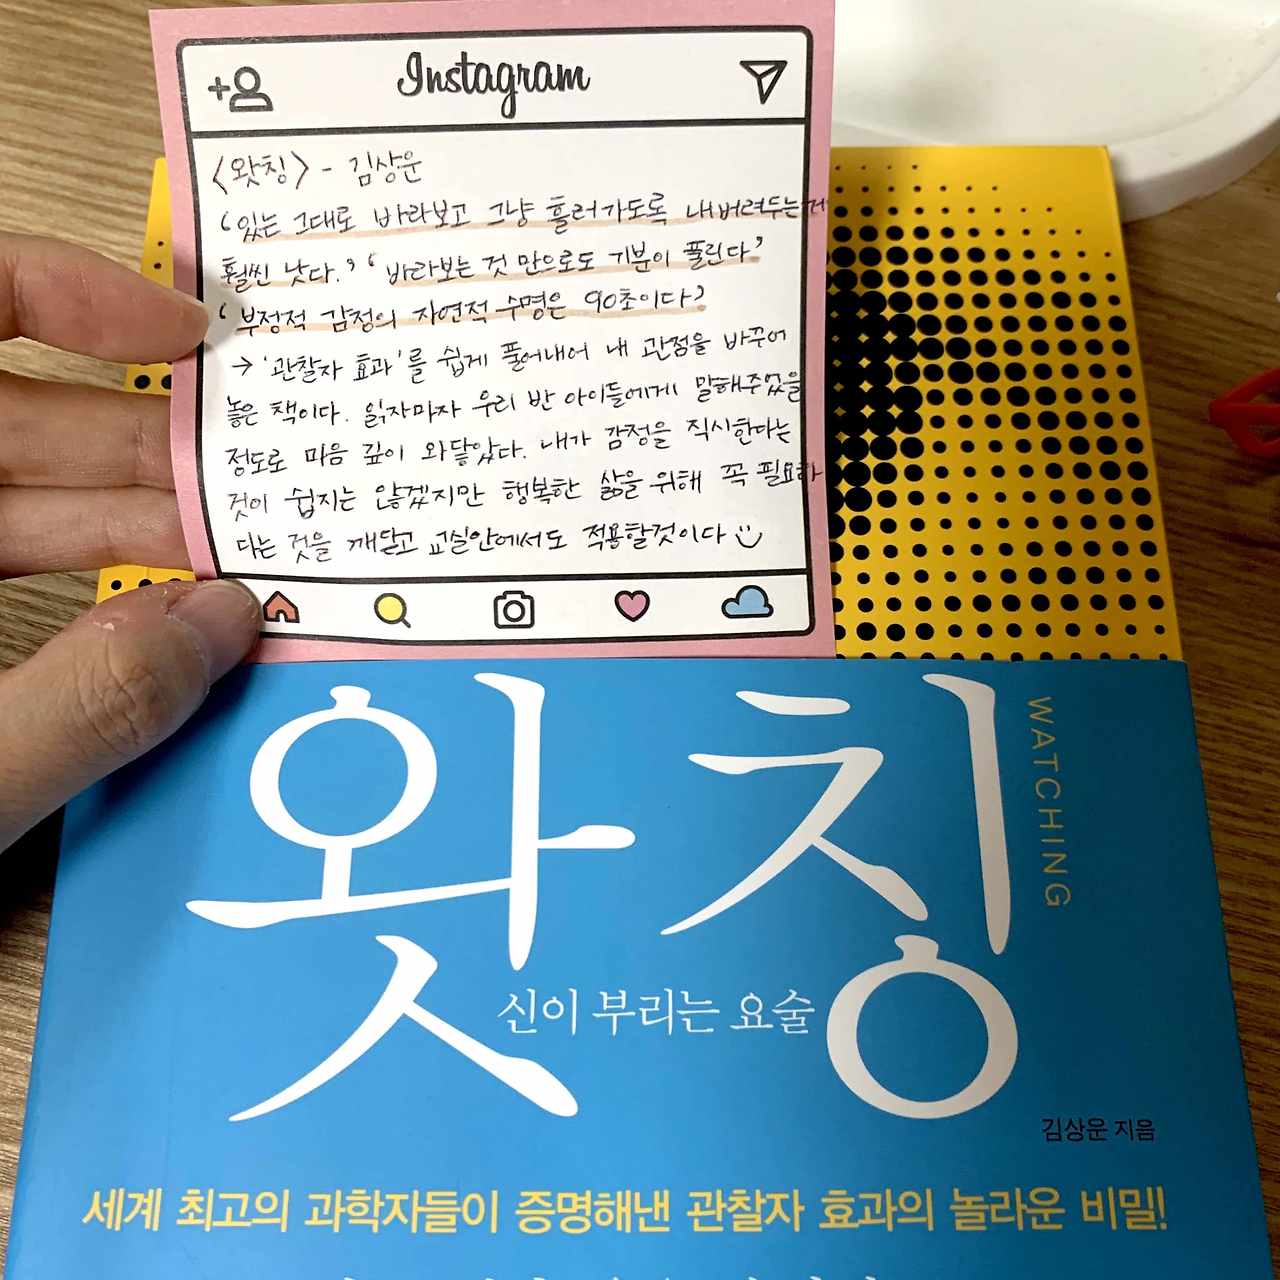 Instagram
<왓칭> - 김상운
'있는 그대로 바라보고 그냥 흘러가도록 내버려두는게
훨씬 낫다.' '바라보는 것 만으로도 기분이 풀린다'
'부정적 감정의 자연적 수명은 90초이다'
→ '관찰자 효과'를 쉽게 풀어내어 내 관점을 바꾸어
놓은 책이다. 읽자마자 우리 반 아이들에게 말해주었을
정도로 마음 깊이 와닿았다. 내가 감정을 직시한다는
것이 쉽지는 않겠지만 행복한 삶을 위해 꼭 필요하
다는 것을 깨닫고 교실안에서도 적용할것이다
왓칭
WATCHING
신이 부리는 요술
김상운 지음
세계 최고의 과학자들이 증명해낸 관찰자 효과의 놀라운 비밀!